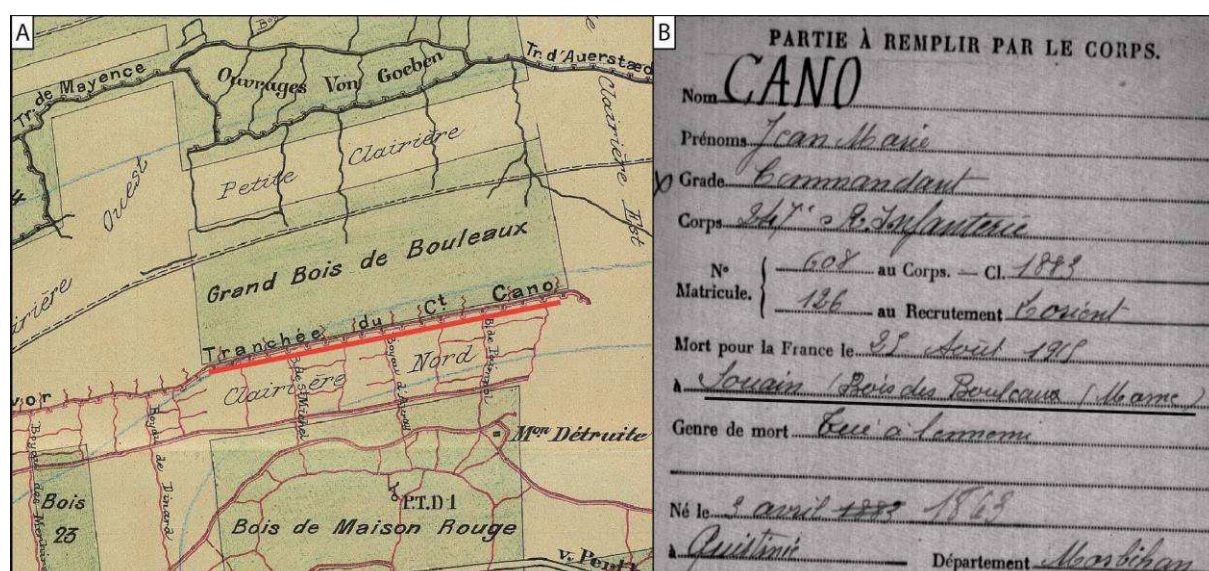 A
Tr. de Mayence
Ouvrages Von Goeben
Tr. d'Auerstæd
Clairière Est
Ouest
Petite Clairière
Grand Bois de Bouleaux
Clairière
Tranchée du Ct Cano
Clairière Nord
B. de St Michel
vor
Boyau de Dinard
Mon Détruite
P.T.D 1
Bois 23
Bois de Maison Rouge
B
PARTIE À REMPLIR PAR LE CORPS.
Nom CANO
Prénoms Jean Marie
Grade Commandant
Corps 247e R. Infanterie
No Matricule. 608 au Corps. — Cl. 1883
126 au Recrutement Lorient
Mort pour la France le 25 Août 1915
à Souain (Bois des Bouleaux) (Marne)
Genre de mort Tué à l'ennemi
Né le 3 avril 1883 1863
à Quistinic Département Morbihan